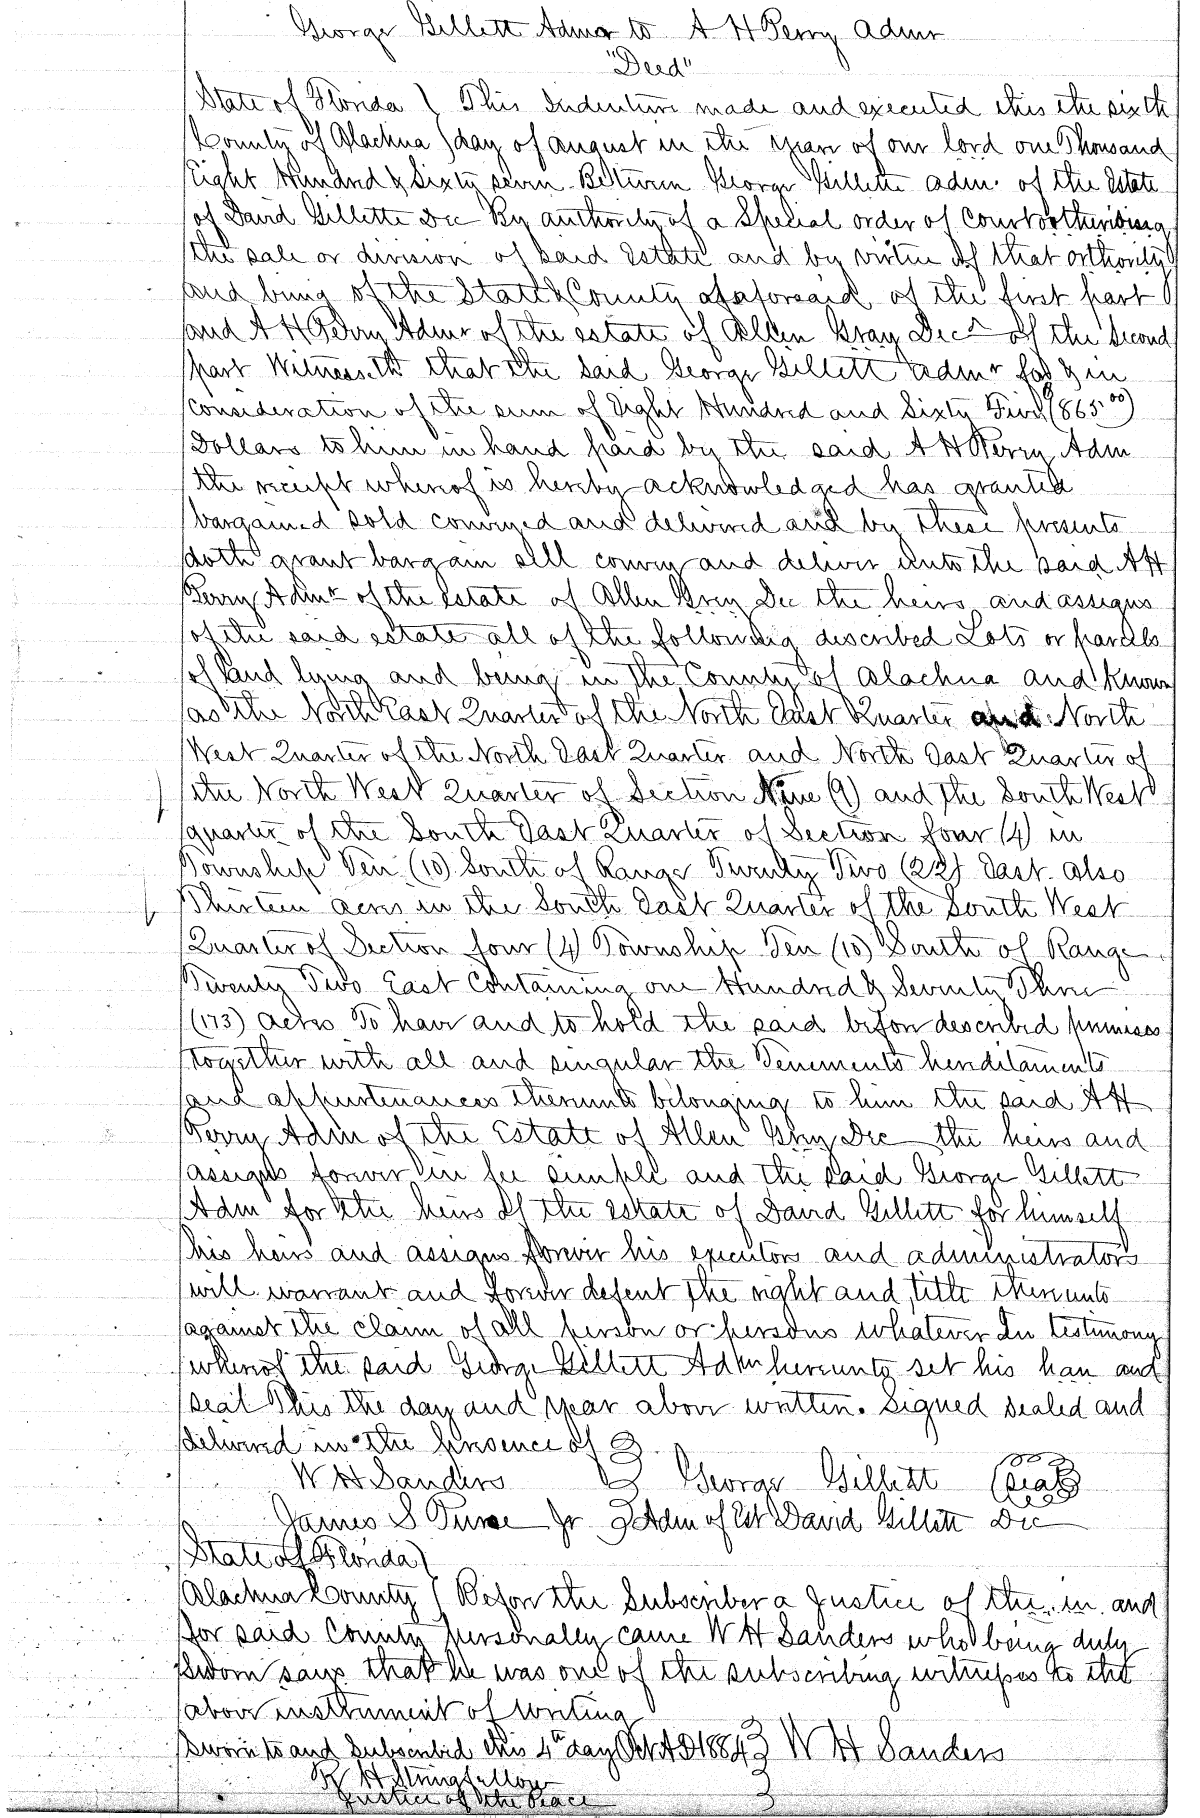 George Gillett Admr to A H Perry Admr
"Deed"
State of Florida } This Indenture made and executed this the sixth
County of Alachua } day of august in the year of our lord one Thousand
Eight Hundred & Sixty seven Between George Gillette adm. of the Estate
of David Gillette Dec By authority of a Special order of Court otherising
the sale or division of said Estate and by virtue of that orthority
and being of the State & County aforesaid of the first part
and A H Perry Admr of the estate of Allen Gray Decd of the Second
part Witnesseth that the Said George Gillett admr for & in
consideration of the sum of Eight Hundred and Sixty Five (865.00)
Dollars to him in hand paid by the said A H Perry Adm
the receipt whereof is hereby acknowledged has granted
bargained sold conveyed and delivered and by these presents
doth grant bargain sell convey and deliver unto the said A H
Perry Admr of the Estate of Allen Grey Dec the heirs and assigns
of the said estate all of the following described Lots or parcels
of land lying and being in the County of Alachua and Known
as the North East Quarter of the North East Quarter and North
West Quarter of the North East Quarter and North East Quarter of
the North West Quarter of Section Nine (9) and the South West
quarter of the South East Quarter of Section four (4) in
Township Ten (10) South of Range Twenty Two (22) East. also
Thirteen acres in the South East Quarter of the South West
Quarter of Section four (4) Township Ten (10) South of Range
Twenty Two East Containing one Hundred & Seventy Three
(173) acres To have and to hold the said before described premises
together with all and singular the Tenements hereditaments
and appurtenances thereunto belonging to him the said A H
Perry Adm of the Estate of Allen Gray Dec the heirs and
assigns forever in fee simple and the said George Gillett
Adm for the heirs of the estate of David Gillett for himself
his heirs and assigns forever his executors and administrators
will warrant and forever defent the right and title thereunto
against the claim of all person or persons whatever In testimony
whereof the said George Gillett Adm hereunto set his han and
seal This the day and year above written. Signed Sealed and
delivered in the presence of }
W H Sanders } George Gillett (Seal)
James S Turse Jr } Adm of Est David Gillett Dec
State of Florida }
Alachua County } Before the Subscriber a Justice of the in and
for said County personaley came W H Sanders who being duly
sworn says that he was one of the subscribing witnesses to the
above instrument of writing
Sworn to and Subscribed this 4th day Oct AD 1884 } W H Sanders
R H Stringfellow
Justice of the Peace }